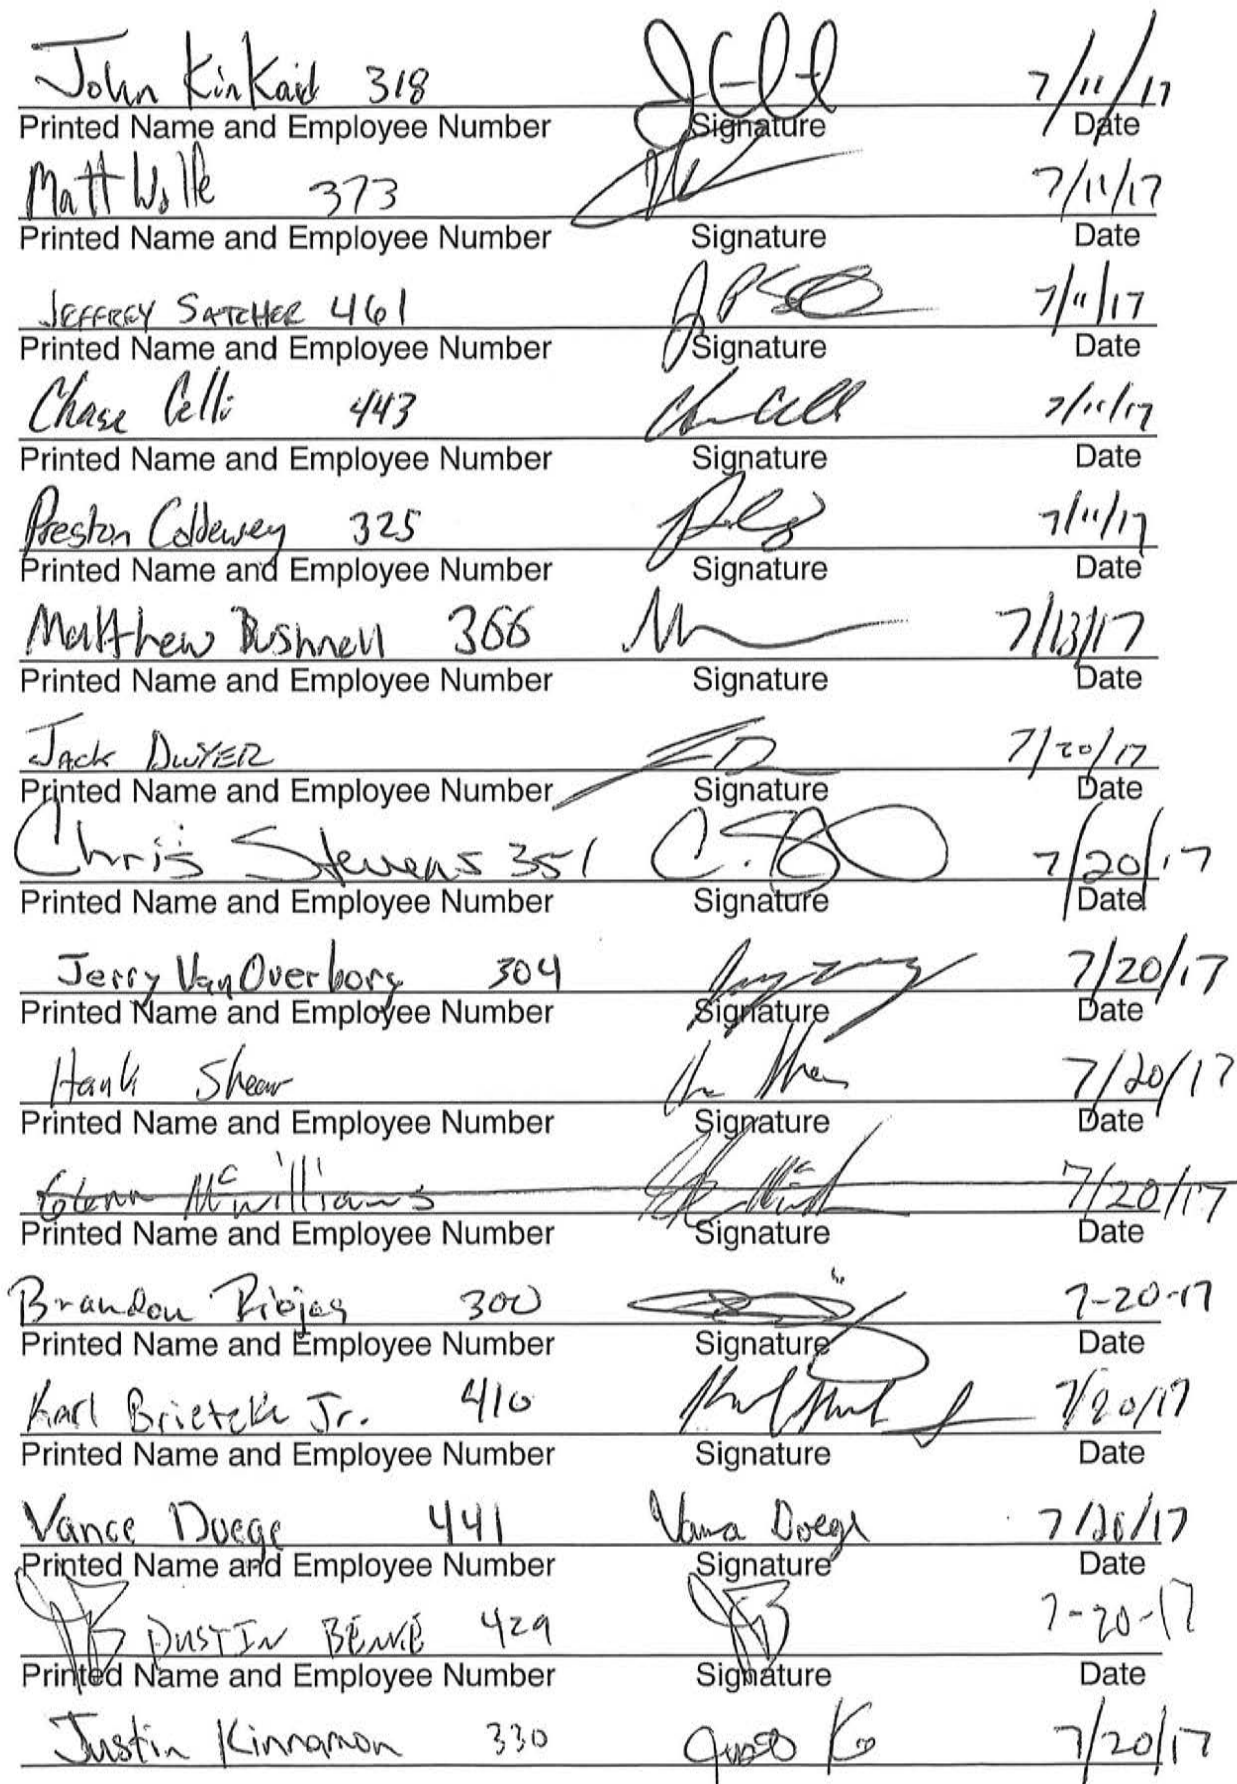 John KinKaid 318 7/11/17
Printed Name and Employee Number Signature Date
Matt Wolfe 373 7/11/17
Printed Name and Employee Number Signature Date
JEFFREY SATCHER 461 7/11/17
Printed Name and Employee Number Signature Date
Chase Celli 443 7/11/17
Printed Name and Employee Number Signature Date
Preston Coldewey 325 7/11/17
Printed Name and Employee Number Signature Date
Matthew Bushnell 366 7/13/17
Printed Name and Employee Number Signature Date
JACK DWYER 7/20/17
Printed Name and Employee Number Signature Date
Chris Stevens 351 7/20/17
Printed Name and Employee Number Signature Date
Jerry VanOverborg 304 7/20/17
Printed Name and Employee Number Signature Date
Hank Shear 7/20/17
Printed Name and Employee Number Signature Date
Glenn McWilliams 7/20/17
Printed Name and Employee Number Signature Date
Brandon Riojas 300 7-20-17
Printed Name and Employee Number Signature Date
Karl Brietzke Jr. 410 7/20/17
Printed Name and Employee Number Signature Date
Vance Duege 441 Vance Doege 7/20/17
Printed Name and Employee Number Signature Date
DUSTIN 429 7-20-17
Printed Name and Employee Number Signature Date
Justin Kinnamon 330 7/20/17